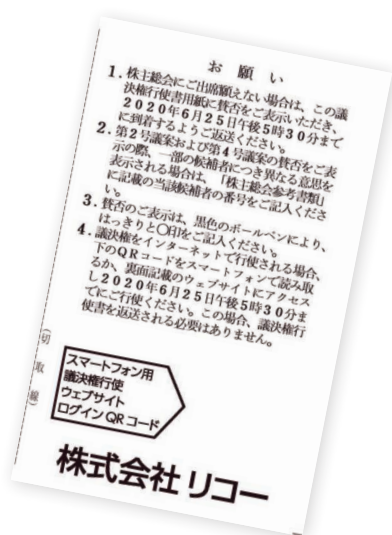 お願い
1. 株主総会にご出席願えない場合は、この議
決権行使書用紙に賛否をご表示いただき、
2020年6月25日午後5時30分まで
に到着するようご返送ください。
2. 第2号議案および第4号議案の賛否をご表
示の際、一部の候補者につき異なる意思を
表示される場合は、「株主総会参考書類」
に記載の当該候補者の番号をご記入くださ
い。
3. 賛否のご表示は、黒色のボールペンにより、
はっきりと〇印をご記入ください。
4. 議決権をインターネットで行使される場合、
下のQRコードをスマートフォンで読み取
るか、裏面記載のウェブサイトにアクセス
し2020年6月25日午後5時30分ま
でにご行使ください。この場合、議決権行
使書を返送される必要はありません。
(切取線)
スマートフォン用
議決権行使
ウェブサイト
ログインQRコード
株式会社リコー